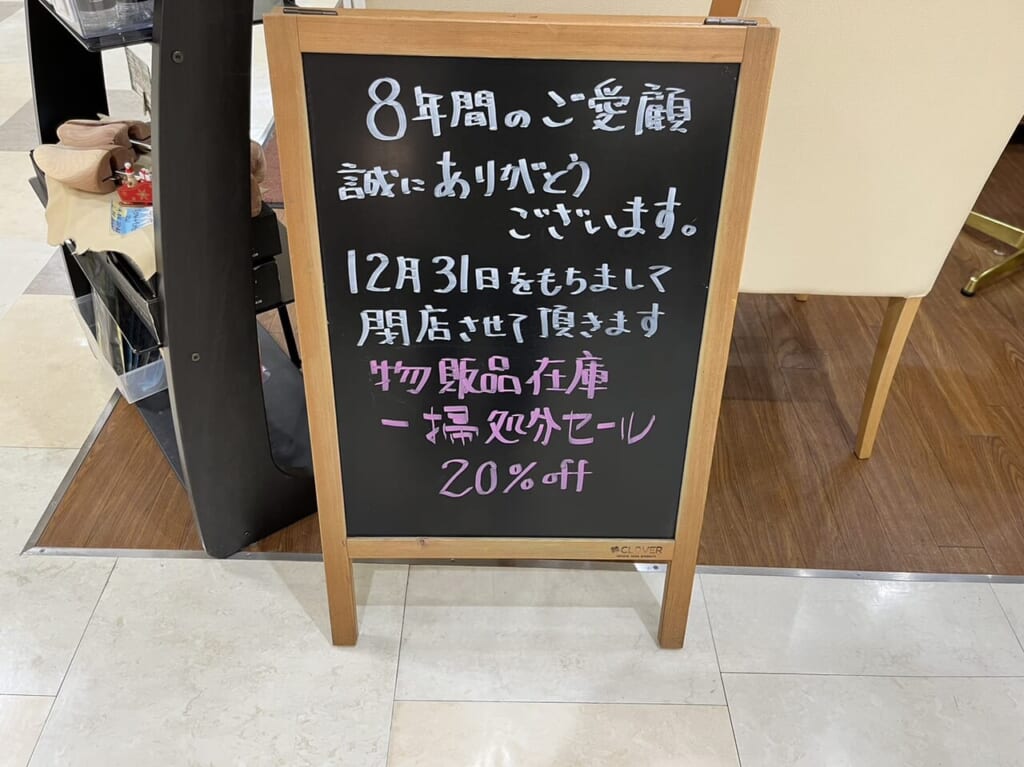 8年間のご愛顧
誠にありがとう
ございます。
12月31日をもちまして
閉店させて頂きます
物販品在庫
一掃処分セール
20%off
CLOVER